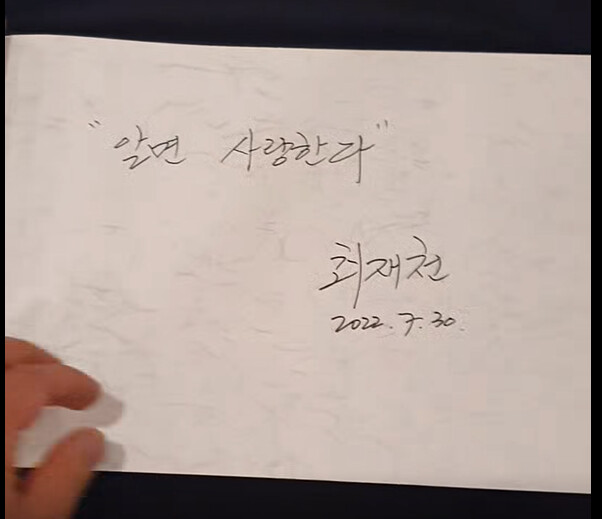 "알면 사랑한다"
최재천
2022. 7. 30.